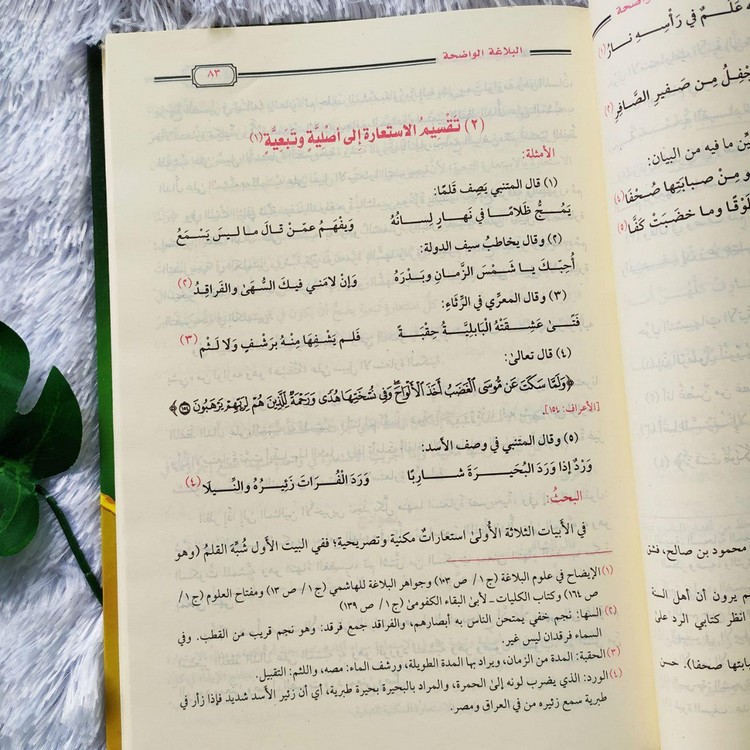 البلاغة الواضحة
٨٣
(٢) تَقْسِيمُ الاسْتعارة إلى أصْلِيَّةٍ وتَبَعِيَّة (١)
الأمثلة:
(١) قال المتنبي يَصِف قَلمًا:
يَمُــجُّ ظَلامًـا في نَهـارٍ لِسـانُهُ ويَفْهَمُ عمَّنْ قالَ ما ليسَ يَسْمَعُ
(٢) وقال يخاطبُ سيف الدولة:
أُحِبُّكَ يـا شَمْسَ الزَّمانِ وبَدْرَهُ وَإنْ لامَني فيكَ السُّهَىٰ والفَراقِدُ (٢)
(٣) وقال المعرِّي في الرِّثَاءِ:
فَتًـى عَشِـقَتْهُ الْبَابِليَّةُ حِقْبَةً فَلم يَشْفِهَا مِنْهُ بِرَشْفٍ وَلا لَثْمِ (٣)
(٤) قال تعالىٰ:
﴿وَلَمَّا سَكَتَ عَن مُّوسَى ٱلْغَضَبُ أَخَذَ ٱلْأَلْوَاحَ وَفِى نُسْخَتِهَا هُدًى وَرَحْمَةٌ لِّلَّذِينَ هُمْ لِرَبِّهِمْ يَرْهَبُونَ ١٥٤﴾
[الأعراف: ١٥٤].
(٥) وقال المتنبي في وصف الأسد:
وَرْدٌ إذا وَرَدَ البُحَيرَةَ شـارِبًا وَرَدَ الْفُرَاتَ زَئِيرُهُ والنِّيلَا (٤)
البحثُ:
في الأَبيات الثلاثة الأُولىٰ استعاراتٌ مكنية وتصريحية؛ ففي البيت الأَول شُبِّه القلمُ (وهو
(١) الإيضاح في علوم البلاغة (ج ١/ ص ١٠٣) وجواهر البلاغة للهاشمي (ج ١/ ص ١٣) ومفتاح العلوم (ج ١/
ص ١٦٤) وكتاب الكليات ـ لأبى البقاء الكفومىٰ (ج ١/ ص ١٣٩)
(٢) السها: نجم خفي يمتحن الناس به أبصارهم، والفراقد جمع فرقد: وهو نجم قريب من القطب. وفي
السماء فرقدان ليس غير.
(٣) الحقبة: المدة من الزمان، ويراد بها المدة الطويلة، ورشف الماء: مصه، واللثم: التقبيل.
(٤) الورد: الذي يضرب لونه إلىٰ الحمرة، والمراد بالبحيرة بحيرة طبرية، أي أن زئير الأسد شديد فإذا زأر في
طبرية سمع زئيره من في العراق ومصر.
عَلَمٌ في رَأسِهِ نـارُ (١)
مِـن صَـفيرِ الصَّافِرِ (٢)
ما فيه من البيان:
مِـنْ صبابَتِها صُحُفَا (٤)
وما خضبَتْ كفًّا (٥)
محمود بن صالح،
يرون أن أهل
انظر كتابي الرد علىٰ
صبابتها صحفا). حسن